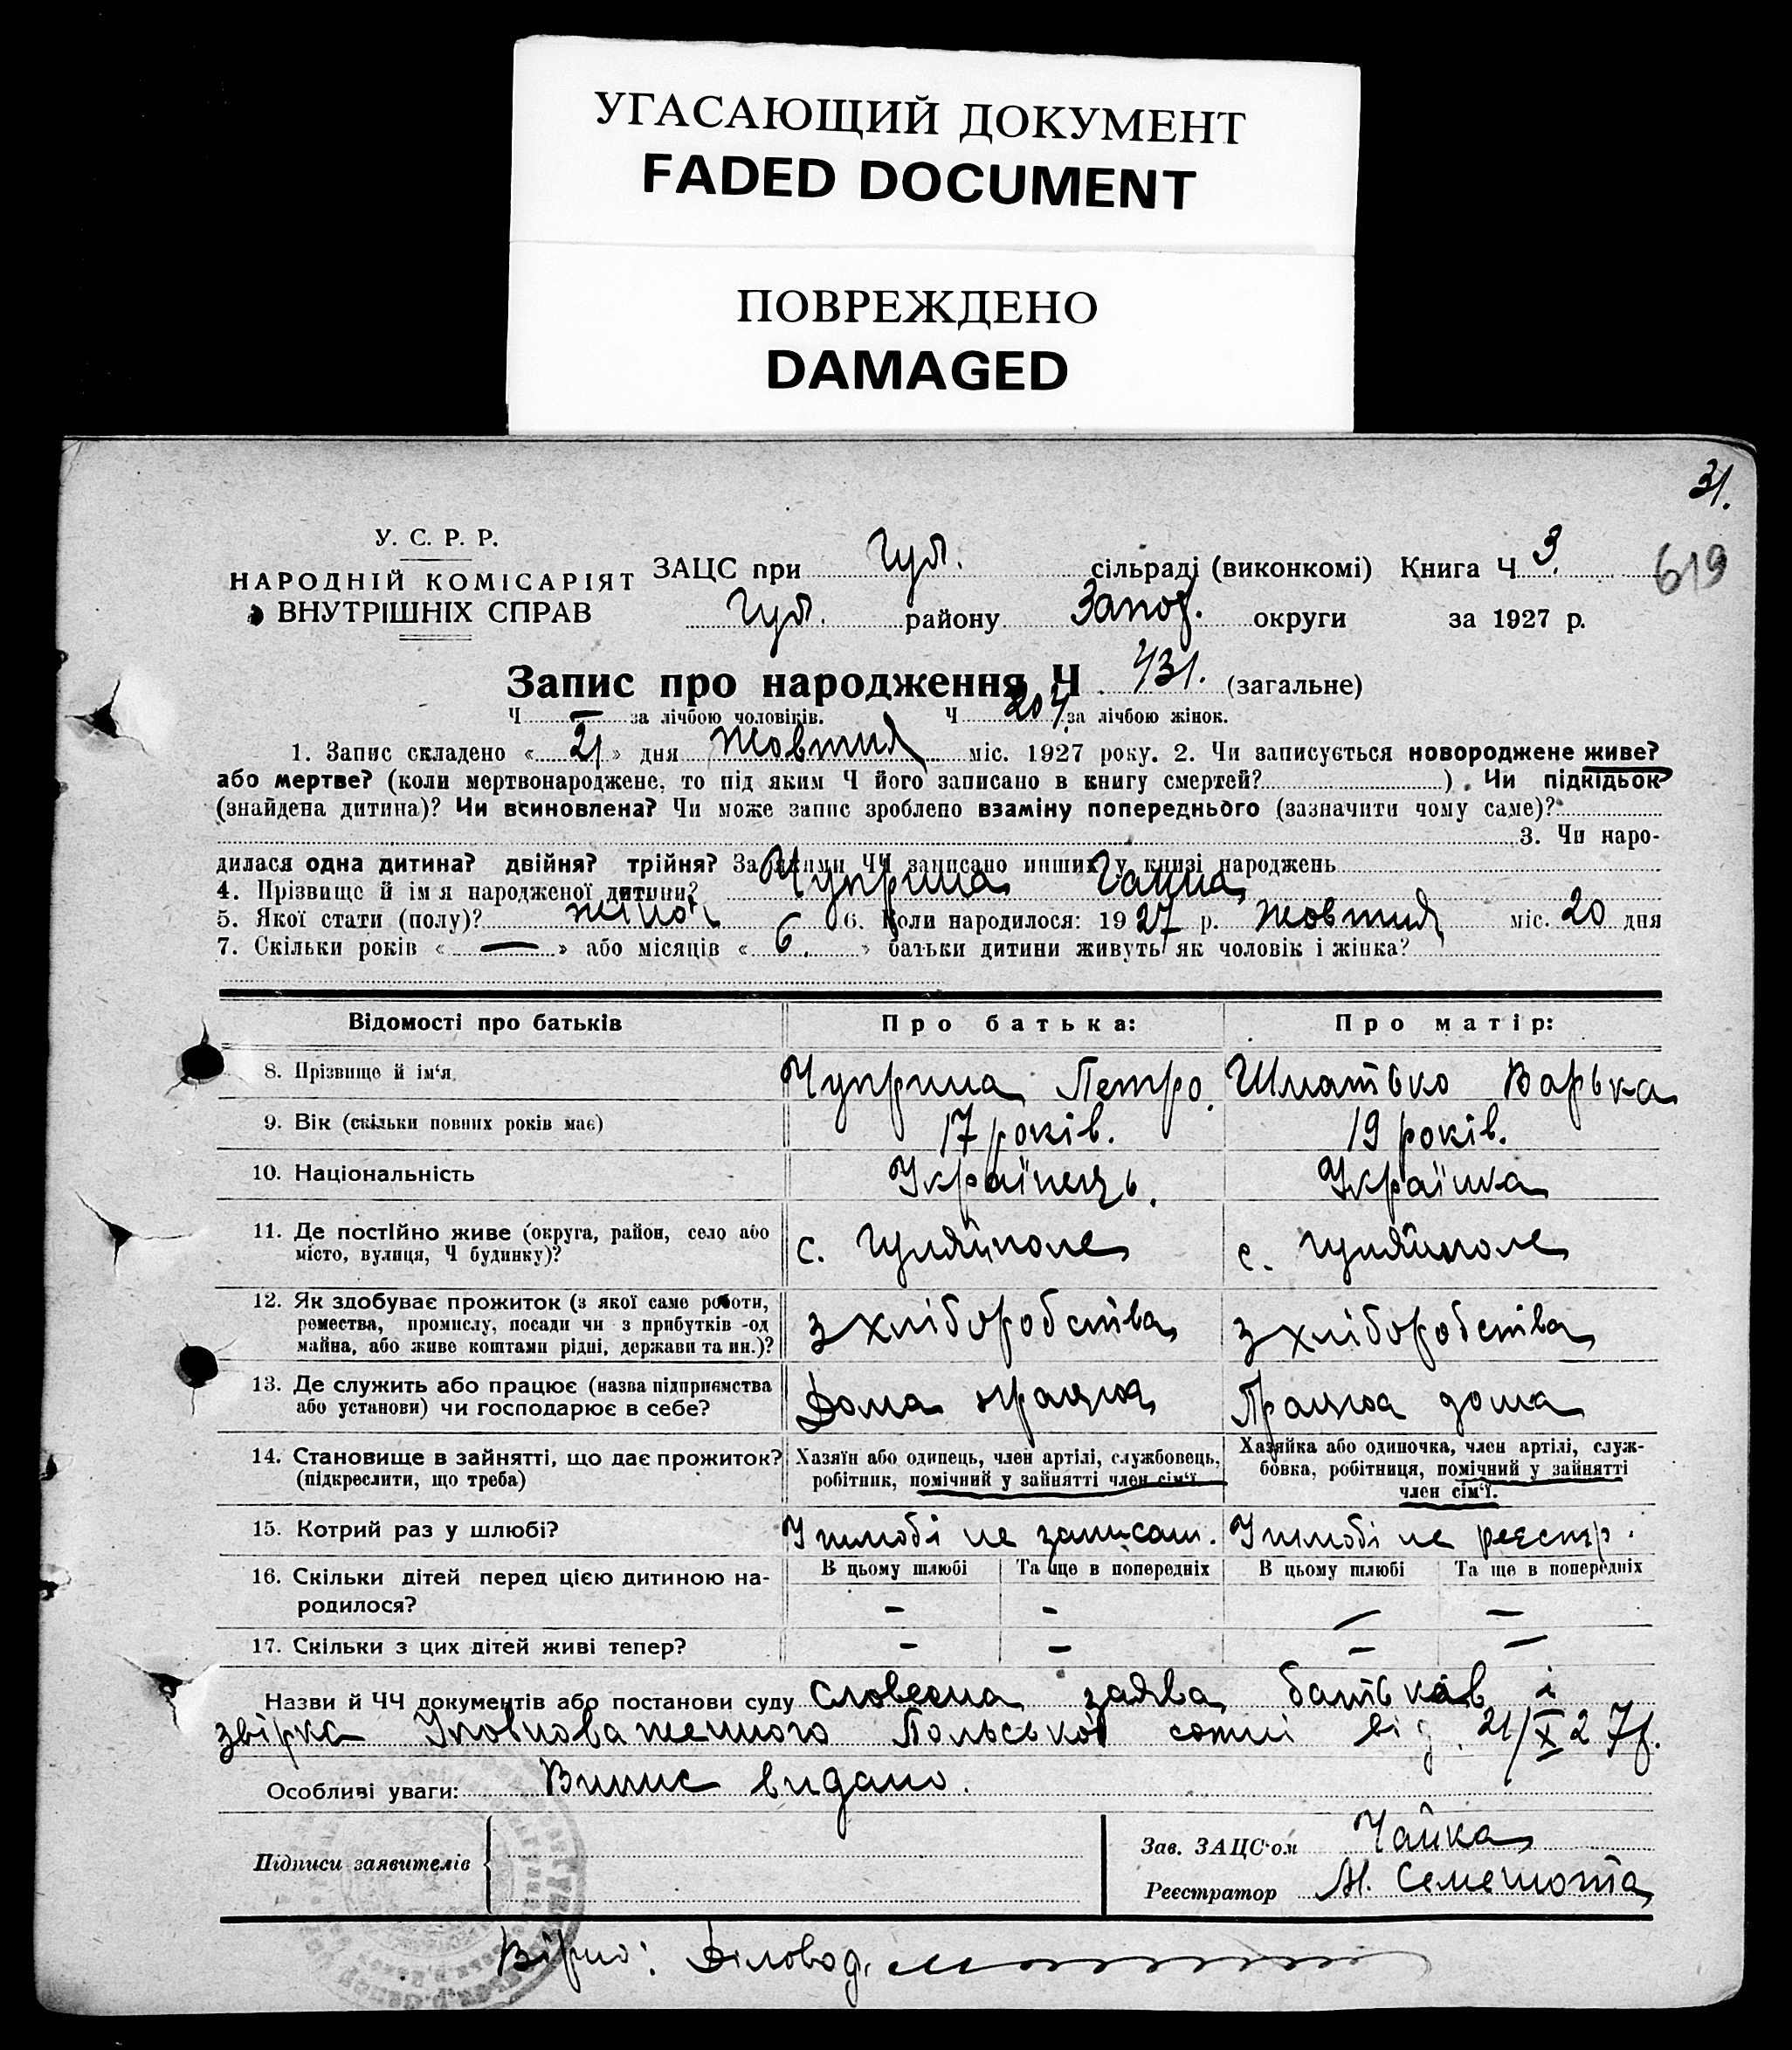 УГАСАЮЩИЙ ДОКУМЕНТ
FADED DOCUMENT
ПОВРЕЖДЕНО
DAMAGED
31.
619
У. С. Р. Р.
НАРОДНІЙ КОМІСАРІЯТ
ВНУТРІШНІХ СПРАВ
ЗАЦС при Гул. сільраді (виконкомі) Книга Ч 3.
Гул. району Запоr. округи за 1927 р.
Запис про народження Ч. 431. (загальне)
Ч — за лічбою чоловіків. Ч 204 за лічбою жінок.
1. Запис складено « 21 » дня Жовтня міс. 1927 року. 2. Чи записується новороджене живе?
або мертве? (коли мертвонароджене, то під яким Ч його записано в книгу смертей? ). Чи підкідьок
(знайдена дитина)? Чи всиновлена? Чи може запис зроблено взаміну попереднього (зазначити чому саме)?
3. Чи наро-
дилася одна дитина? двійня? трійня? За якими ЧЧ записано инших у книзі народжень
4. Прізвище й ім я народженої дитини? Чуприна Ганна
5. Якої стати (полу)? жіноч. 6. Коли народилося: 1927 р. Жовтня міс. 20 дня
7. Скільки років « — » або місяців « 6. » батьки дитини живуть як чоловік і жінка?
Відомості про батьків Про батька: Про матір:
8. Прізвище й ім'я Чуприна Петро. Шматько Варька
9. Вік (скільки повних років має) 17 років. 19 років.
10. Національність Українець. Українка
11. Де постійно живе (округа, район, село або
місто, вулиця, Ч будинку)? с. Гуляйполе с. Гуляйполе
12. Як здобуває прожиток (з якої саме роботи,
ремества, промислу, посади чи з прибутків -од
майна, або живе коштами рідні, держави та ин.)? з хліборобства з хліборобства
13. Де служить або працює (назва підприємства
або установи) чи господарює в себе? Дома працює Працює дома
14. Становище в зайнятті, що дає прожиток?
(підкреслити, що треба)
Хазяїн або одинець, член артілі, службовець,
робітник, помічний у зайнятті член сім'ї
Хазяйка або одиночка, член артілі, служ-
бовка, робітниця, помічний у зайнятті
член сім'ї.
15. Котрий раз у шлюбі? У шлюбі не записан. У шлюбі не реєстр.
16. Скільки дітей перед цією дитиною на-
родилося?
В цьому шлюбі Та ще в попередніх В цьому шлюбі Та ще в попередніх
– – – –
17. Скільки з цих дітей живі тепер? – – – –
Назви й ЧЧ документів або постанови суду словесна заява батьків і
звірка Уповноваженного Польської сотні від. 21/X 27р.
Особливі уваги: Випис видано.
Підписи заявителів
Зав. ЗАЦС'ом Чайка
Реєстратор
Вірно: Діловод.